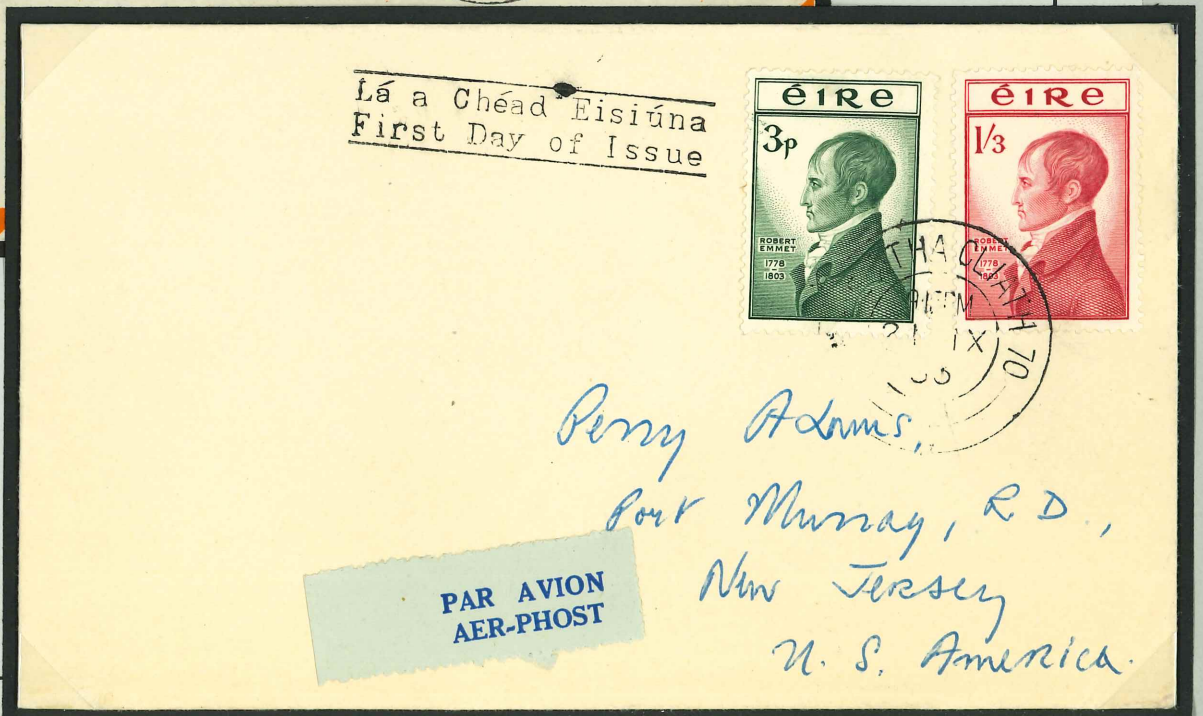 Lá a Chéad Eisiúna
First Day of Issue
éIRe
3p
ROBERT
EMMET
1778
1803
éIRe
1/3
ROBERT
EMMET
1778
1803
THA CLIATH 70
IX
Perry Adams,
Port Murray, R D.,
New Jersey
U. S. America.
PAR AVION
AER-PHOST